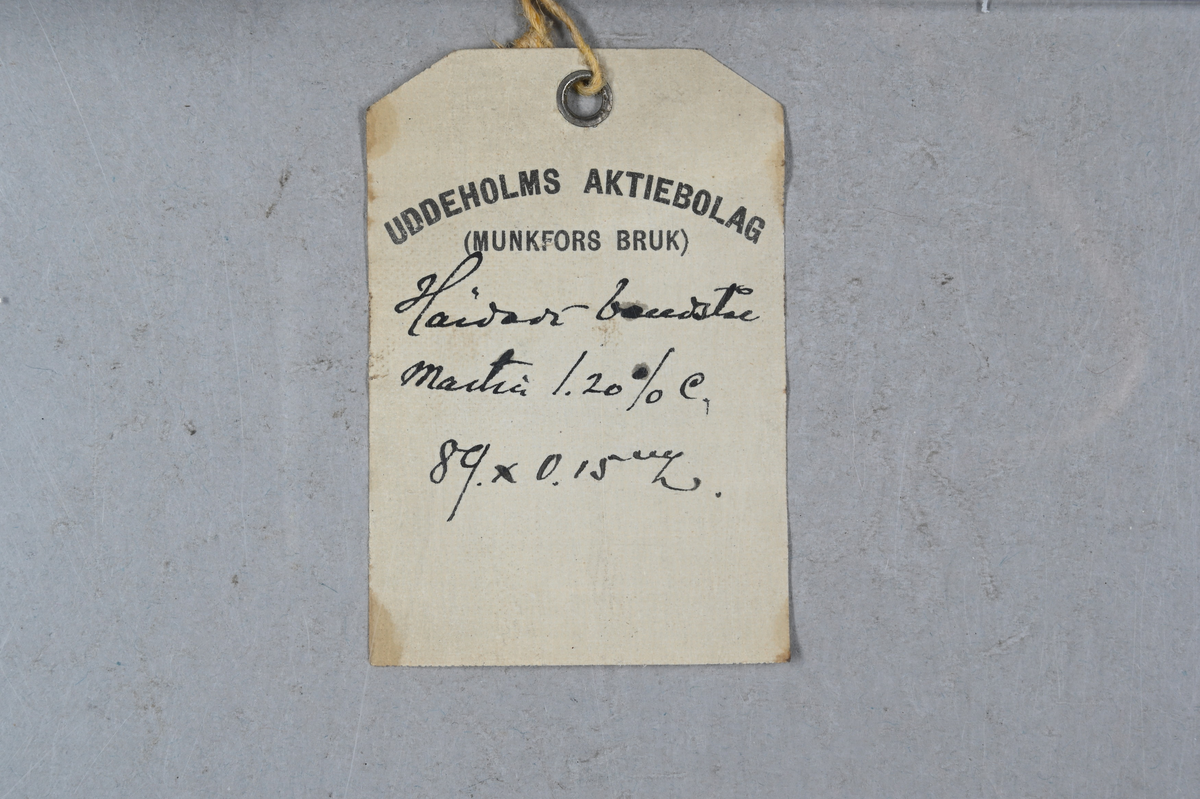 UDDEHOLMS AKTIEBOLAG
(MUNKFORS BRUK)
Härdadt bandstål
Martin 1.20% C,
89. x 0.15 m/m.